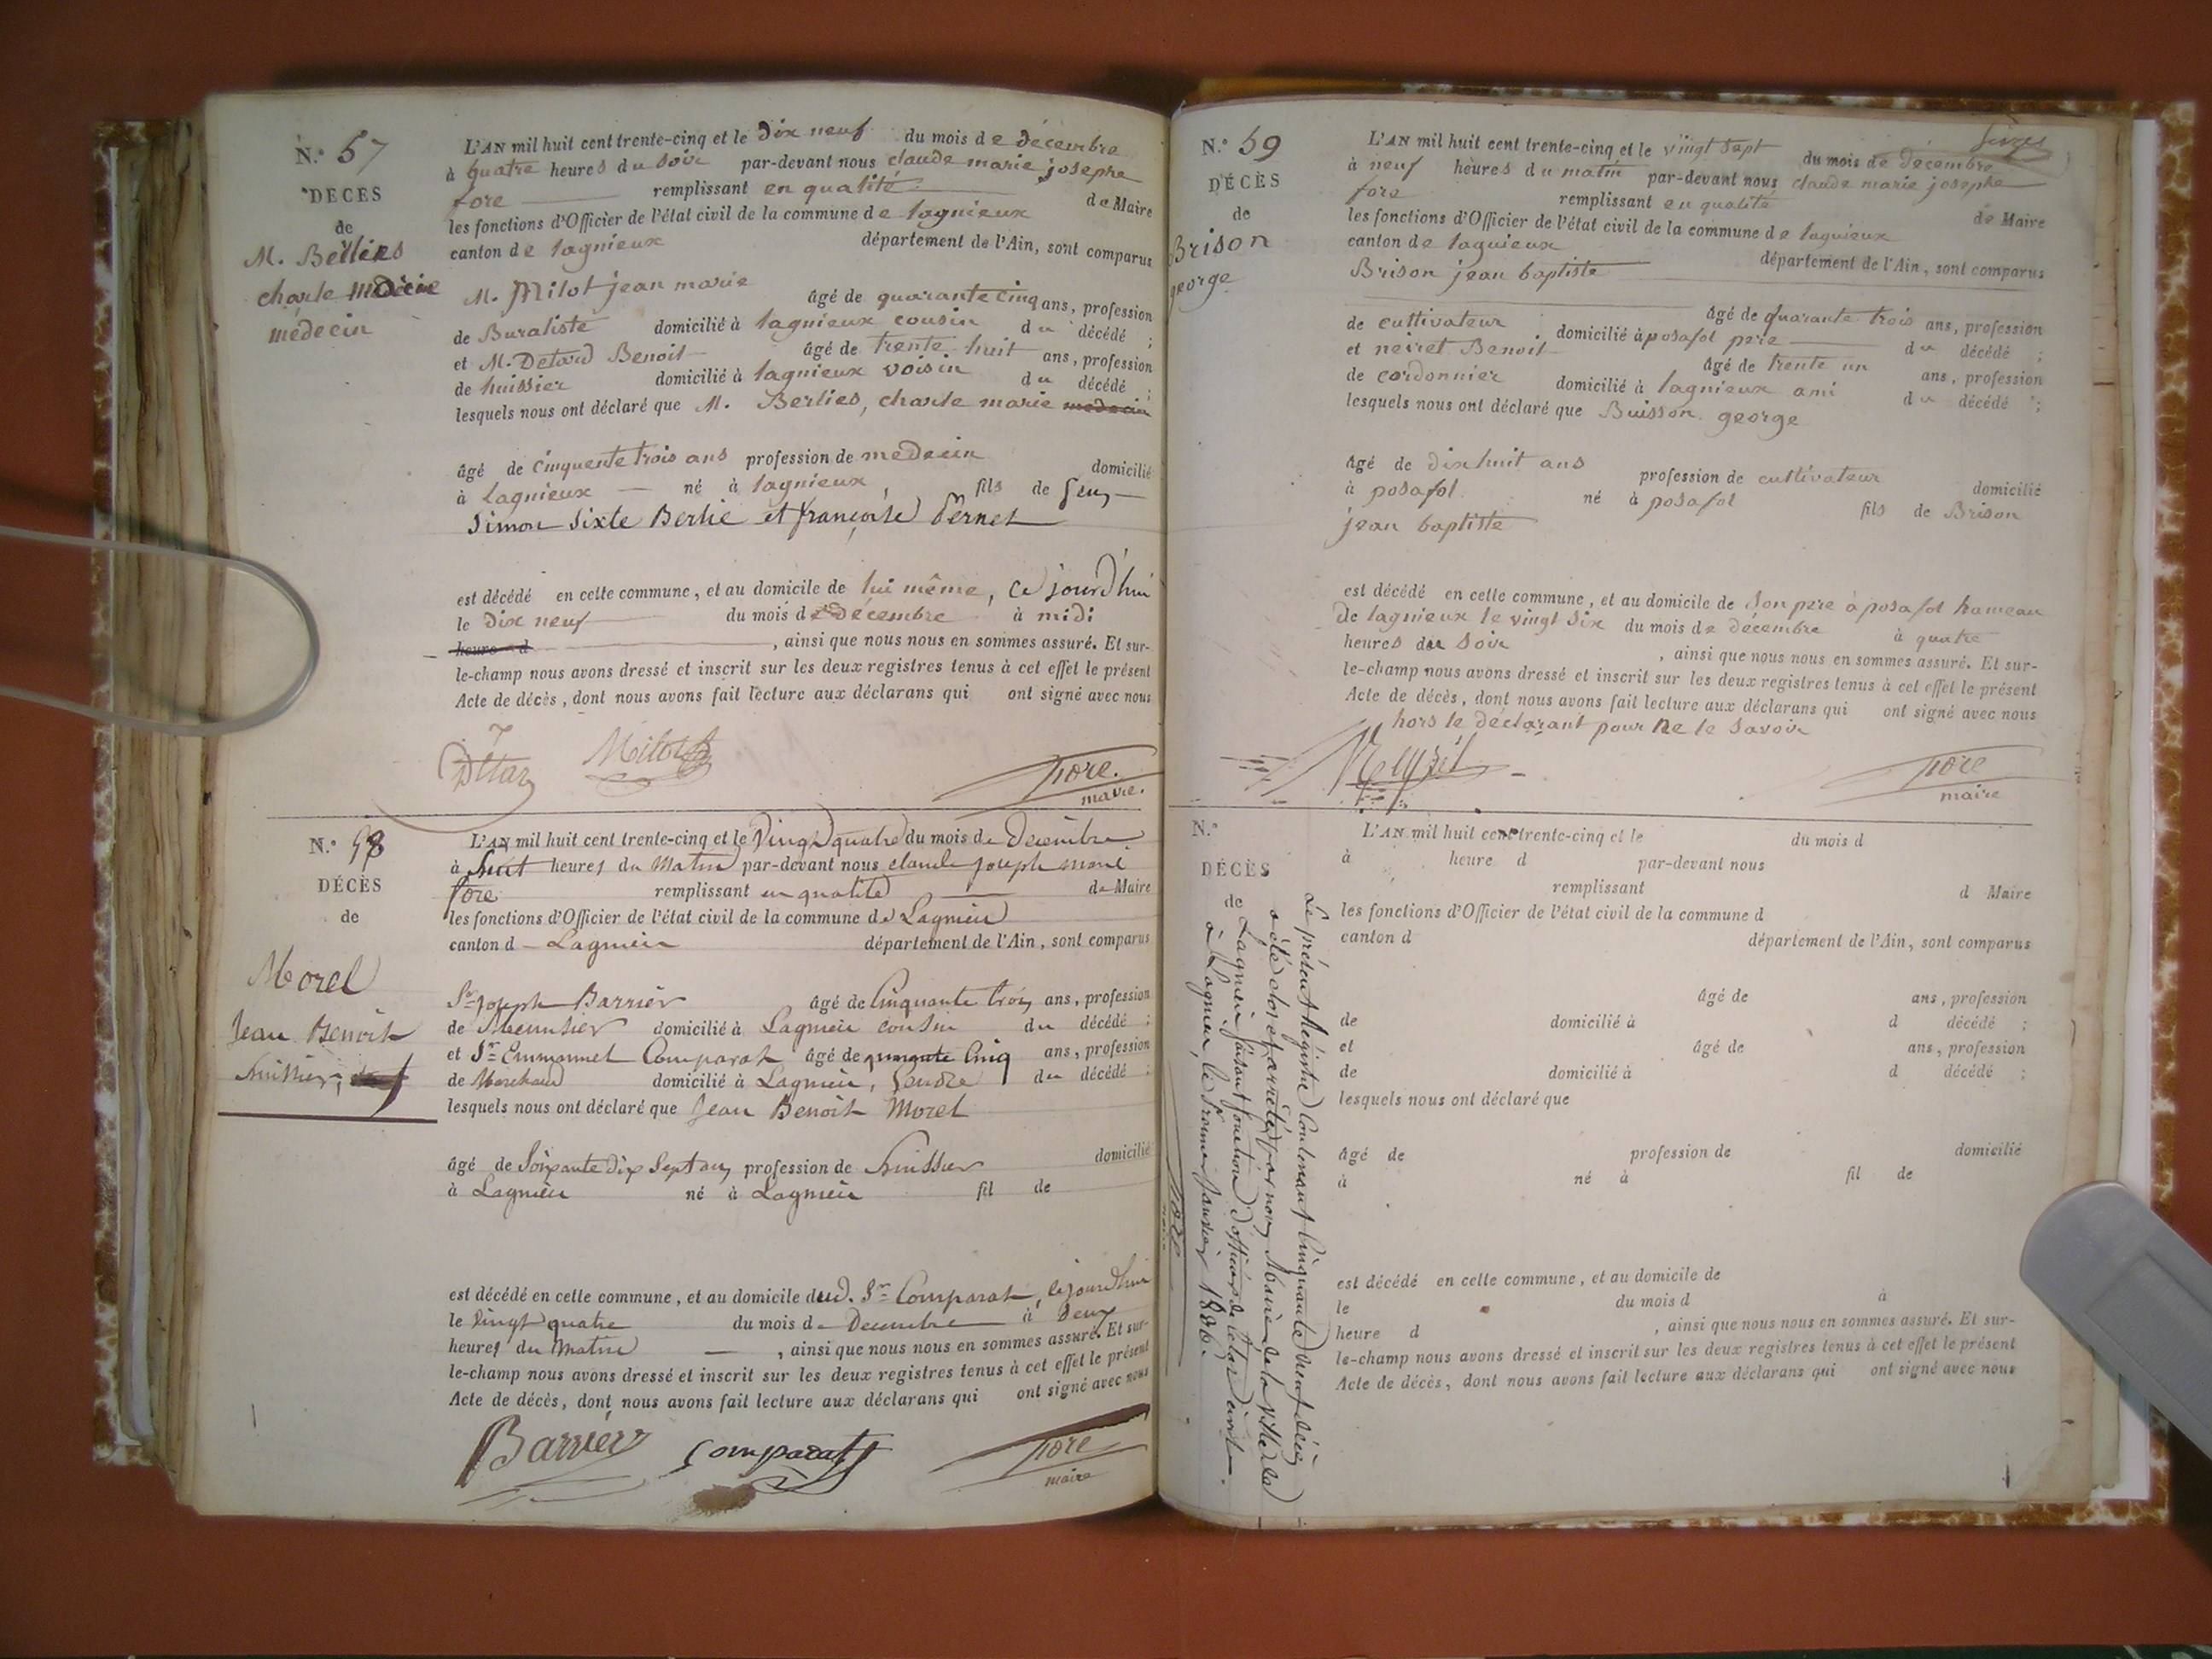 N.º 57
DÉCÈS
de
M. Berlies
charle
médecin
L'AN mil huit cent trente-cinq et le dix neuf du mois de décembre
à quatre heures du soir par-devant nous claude marie josephe
fore remplissant en qualité de Maire
les fonctions d'Officier de l'état civil de la commune de lagnieux
canton de lagnieux département de l'Ain, sont comparus
M. Milot jean marie âgé de quarante cinq ans, profession
de Buraliste domicilié à lagnieux cousin du décédé ;
et M. Detard Benoit âgé de trente huit ans, profession
de huissier domicilié à lagnieux voisin du décédé ;
lesquels nous ont déclaré que M. Berlies, charle marie medecin
âgé de cinquente trois ans profession de medecin domicilié
à Lagnieux né à lagnieux, fils de feu
Simon Sixte Berlie et françoise Vernet
est décédé en cette commune, et au domicile de lui même, ce jourd'hui
le dix neuf du mois de décembre à midi
heure d , ainsi que nous nous en sommes assuré. Et sur-
le-champ nous avons dressé et inscrit sur les deux registres tenus à cet effet le présent
Acte de décès, dont nous avons fait lecture aux déclarans qui ont signé avec nous
Détar Milot fore
maire.
N.º 58
DÉCÈS
de
Morel
Jean Benoit
huissier,
L'AN mil huit cent trente-cinq et le Vingt quatre du mois de Decembre
à huit heures du Matin par-devant nous claude joseph marie
fore remplissant en qualité de Maire
les fonctions d'Officier de l'état civil de la commune de Lagnieu
canton d Lagnieu département de l'Ain, sont comparus
Sr. Joseph Barrier âgé de Cinquante trois ans, profession
de Menusier domicilié à Lagnieu cousin du décédé ;
et Sr. Emmanuel Comparat âgé de quarante Cinq ans, profession
de Marchand domicilié à Lagnieu, Gendre du décédé ;
lesquels nous ont déclaré que Jean Benoit Morel
âgé de Soixante dix Sept ans profession de huissier domicilié
à Lagnieu né à Lagnieu fil de
est décédé en cette commune, et au domicile dud. Sr. Comparat, cejourdhui
le Vingt quatre du mois de Decembre à Deux
heures du Matin , ainsi que nous nous en sommes assuré. Et sur-
le-champ nous avons dressé et inscrit sur les deux registres tenus à cet effet le présent
Acte de décès, dont nous avons fait lecture aux déclarans qui ont signé avec nous
Barrier Comparat fore
maire
N.º 59
DÉCÈS
de
Brison
george
L'AN mil huit cent trente-cinq et le vingt sept du mois de décembre
à neuf heures du matin par-devant nous claude marie josephe
fore remplissant en qualité de Maire
les fonctions d'Officier de l'état civil de la commune de lagnieux
canton de lagnieux département de l'Ain, sont comparus
Brison jean baptiste
âgé de quarante trois ans, profession
de cultivateur domicilié à posafol père du décédé ;
et neiret Benoit âgé de trente un ans, profession
de cordonnier domicilié à lagnieux ami du décédé ;
lesquels nous ont déclaré que Buisson george
âgé de dix huit ans profession de cultivateur domicilié
à posafol né à posafol fils de Brison
jean baptiste
est décédé en cette commune, et au domicile de Son père à posafol hameau
de lagnieux le vingt six du mois de décembre à quatre
heures du soir , ainsi que nous nous en sommes assuré. Et sur-
le-champ nous avons dressé et inscrit sur les deux registres tenus à cet effet le présent
Acte de décès, dont nous avons fait lecture aux déclarans qui ont signé avec nous
hors le déclarant pour ne le savoir
Neyret fore
maire
N.º
DÉCÈS
de
L'AN mil huit cent trente-cinq et le du mois d
à heure d par-devant nous
remplissant d Maire
les fonctions d'Officier de l'état civil de la commune d
canton d département de l'Ain, sont comparus
âgé de ans, profession
de domicilié à d décédé ;
et âgé de ans, profession
de domicilié à d décédé ;
lesquels nous ont déclaré que
âgé de profession de domicilié
à né à fil de
est décédé en cette commune, et au domicile de
le du mois d à
heure d , ainsi que nous nous en sommes assuré. Et sur-
le-champ nous avons dressé et inscrit sur les deux registres tenus à cet effet le présent
Acte de décès, dont nous avons fait lecture aux déclarans qui ont signé avec nous
Le présent Régistre Contenant Cinquante Neuf décès
a été clos et arrêté par nous Maire de la ville de
Lagnieu faisant fonctions d'officier de l'état civil.
à Lagnieu, le premier janvier 1836.
fore
maire